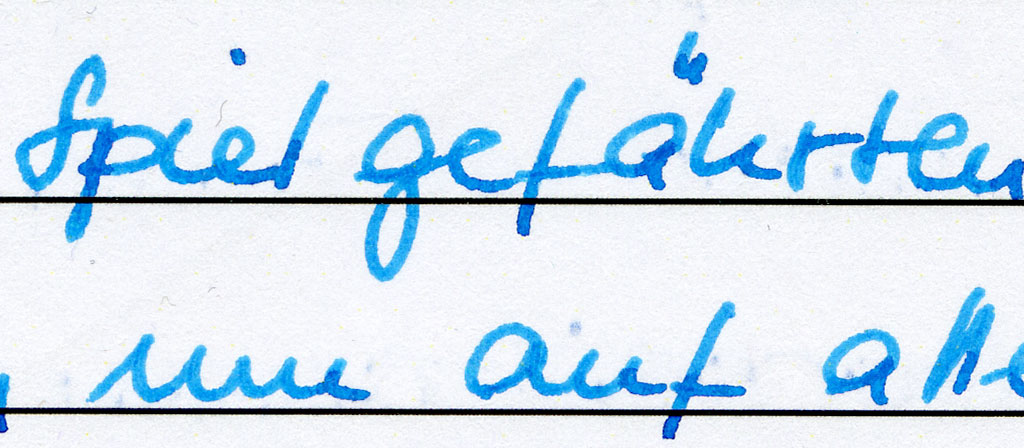 Spielgefährten
nun auf alle